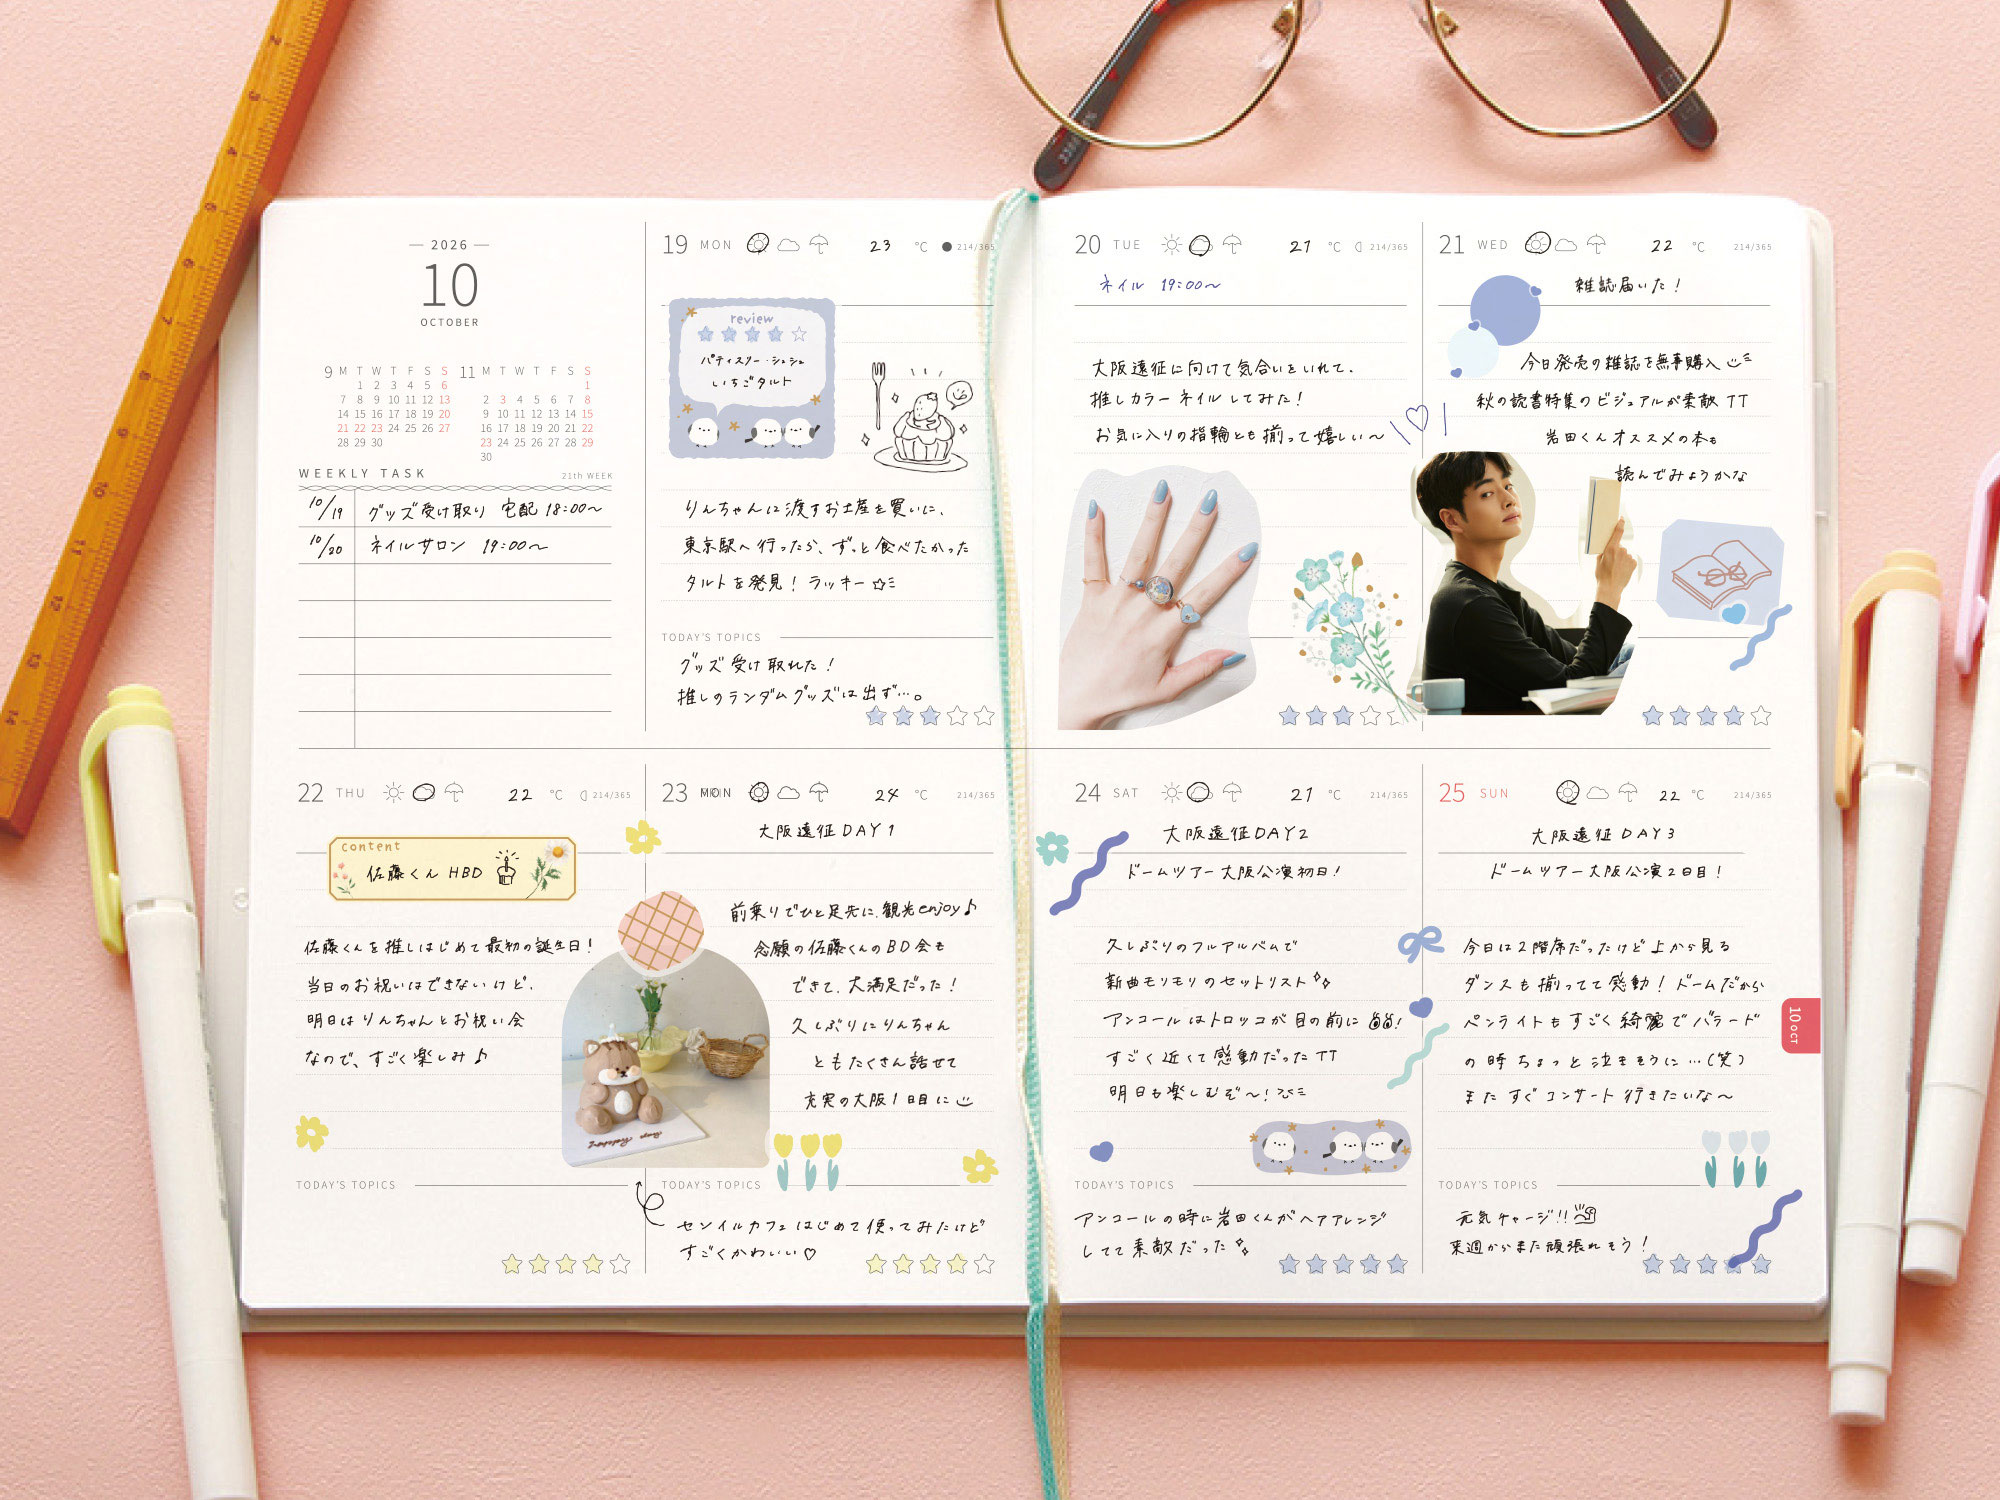 2026
10
OCTOBER
9 M T W T F S S
1 2 3 4 5 6
7 8 9 10 11 12 13
14 15 16 17 18 19 20
21 22 23 24 25 26 27
28 29 30
11 M T W T F S S
1
2 3 4 5 6 7 8
9 10 11 12 13 14 15
16 17 18 19 20 21 22
23 24 25 26 27 28 29
30
WEEKLY TASK 21th WEEK
10/19 グッズ受け取り 宅配 18:00〜
10/20 ネイルサロン 19:00〜
19 MON 23 ℃ 214/365
review
パティスリー・シュシュ
いちごタルト
りんちゃんに渡すお土産を買いに、
東京駅へ行ったら、ずっと食べたかった
タルトを発見！ラッキー☆ミ
TODAY'S TOPICS
グッズ受け取れた！
推しのランダムグッズは出ず…。
20 TUE 21 ℃ 214/365
ネイル 19:00〜
大阪遠征に向けて気合いをいれて、
推しカラーネイルしてみた！
お気に入りの指輪とも揃って嬉しい〜
21 WED 22 ℃ 214/365
雑誌届いた！
今日発売の雑誌を無事購入
秋の読書特集のビジュアルが素敵TT
岩田くんオススメの本も
読んでみようかな
22 THU 22 ℃ 214/365
content
佐藤くんHBD
佐藤くんを推しはじめて最初の誕生日！
当日のお祝いはできないけど、
明日はりんちゃんとお祝い会
なので、すごく楽しみ♪
TODAY'S TOPICS
23 MON 24 ℃ 214/365
大阪遠征DAY1
前乗りでひと足先に、観光enjoy♪
念願の佐藤くんのBD会も
できて、大満足だった！
久しぶりにりんちゃん
ともたくさん話せて
充実の大阪1日目に
TODAY'S TOPICS
センイルカフェはじめて使ってみたけど
すごくかわいい♡
24 SAT 21 ℃ 214/365
大阪遠征DAY2
ドームツアー大阪公演初日！
久しぶりのフルアルバムで
新曲モリモリのセットリスト
アンコールはトロッコが目の前に！
すごく近くて感動だったTT
明日も楽しむぞ〜！
TODAY'S TOPICS
アンコールの時に岩田くんがヘアアレンジ
してて素敵だった
25 SUN 22 ℃ 214/365
大阪遠征DAY3
ドームツアー大阪公演2日目！
今日は2階席だったけど上から見る
ダンスも揃ってて感動！ドームだから
ペンライトもすごく綺麗でバラード
の時ちょっと泣きそうに…(笑)
またすぐコンサート行きたいな〜
TODAY'S TOPICS
元気チャージ!!
来週からまた頑張れそう！
10 OCT